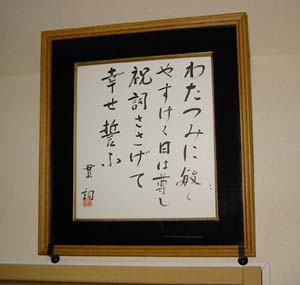 わたつみに敏く
やすけく日は尊し
祝詞ささげて
幸せ誓ふ
貫詞